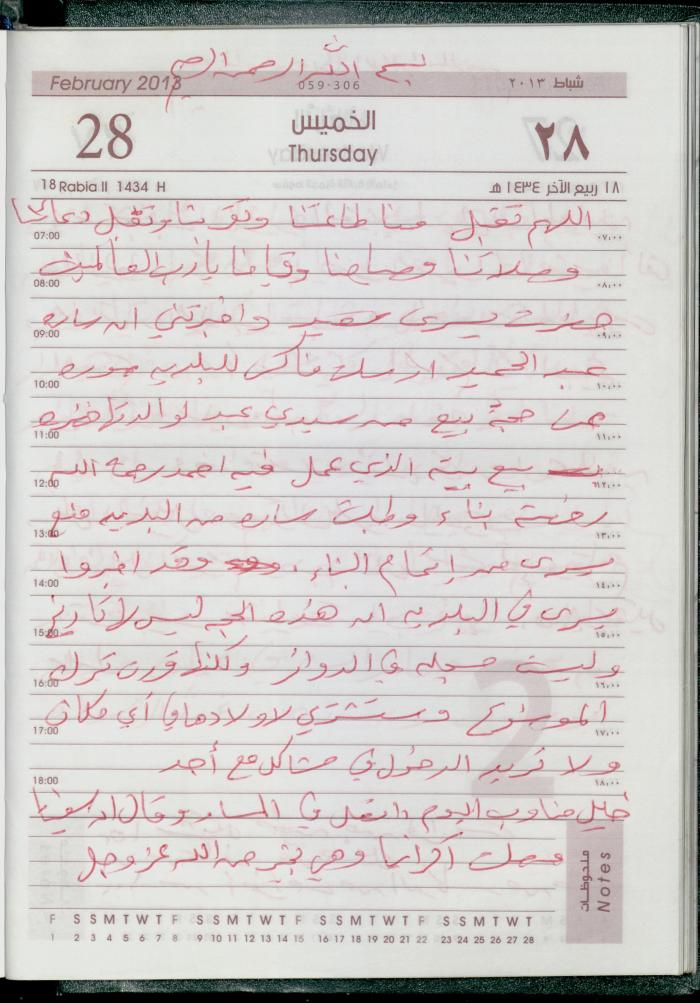 بسم الله الرحمن الرحيم
February 2013 059-306 شباط ٢٠١٣
28 الخميس ٢٨
Thursday
18 Rabia II 1434 H ١٨ ربيع الآخر ١٤٣٤ هـ
اللهم تقبل منا طاعتنا وتقبل دعائنا
07:00 ٠٧,٠٠
وصلاتنا وصيامنا وقيامنا يا رب العالمين
08:00 ٠٨,٠٠
حضرت يسرى واخبرتني ان ساره
09:00 ٠٩,٠٠
عبد الحميد ارسلت فاكس للبلديه صوره
10:00 ١٠,٠٠
عن حجة بيع من سيدي عبد لوالدي
11:00 ١١,٠٠
بيع بيته الذي عمل فيه احمد رحمه الله
12:00 ١٢,٠٠
رخصة بناء وطلبت ساره من البلديه منع
13:00 ١٣,٠٠
يسرى من اتمام البناء وقد اخبروا
14:00 ١٤,٠٠
يسرى في البلديه ان هذه الحجه ليس لها تاريخ
15:00 ١٥,٠٠
وليست مسجله في الدوائر ولكنها قررت ترك
16:00 ١٦,٠٠
الموضوع وستشتري لاولادها في أي مكان
17:00 ١٧,٠٠
ولا تريد الدخول في مشاكل مع أحد
18:00 ١٨,٠٠
خليل مناوب اليوم اتصل في المساء وقال ان
وهي بخير من الله عز وجل
ملحوظات Notes
F S S M T W T F S S M T W T F S S M T W T F S S M T W T
1 2 3 4 5 6 7 8 9 10 11 12 13 14 15 16 17 18 19 20 21 22 23 24 25 26 27 28